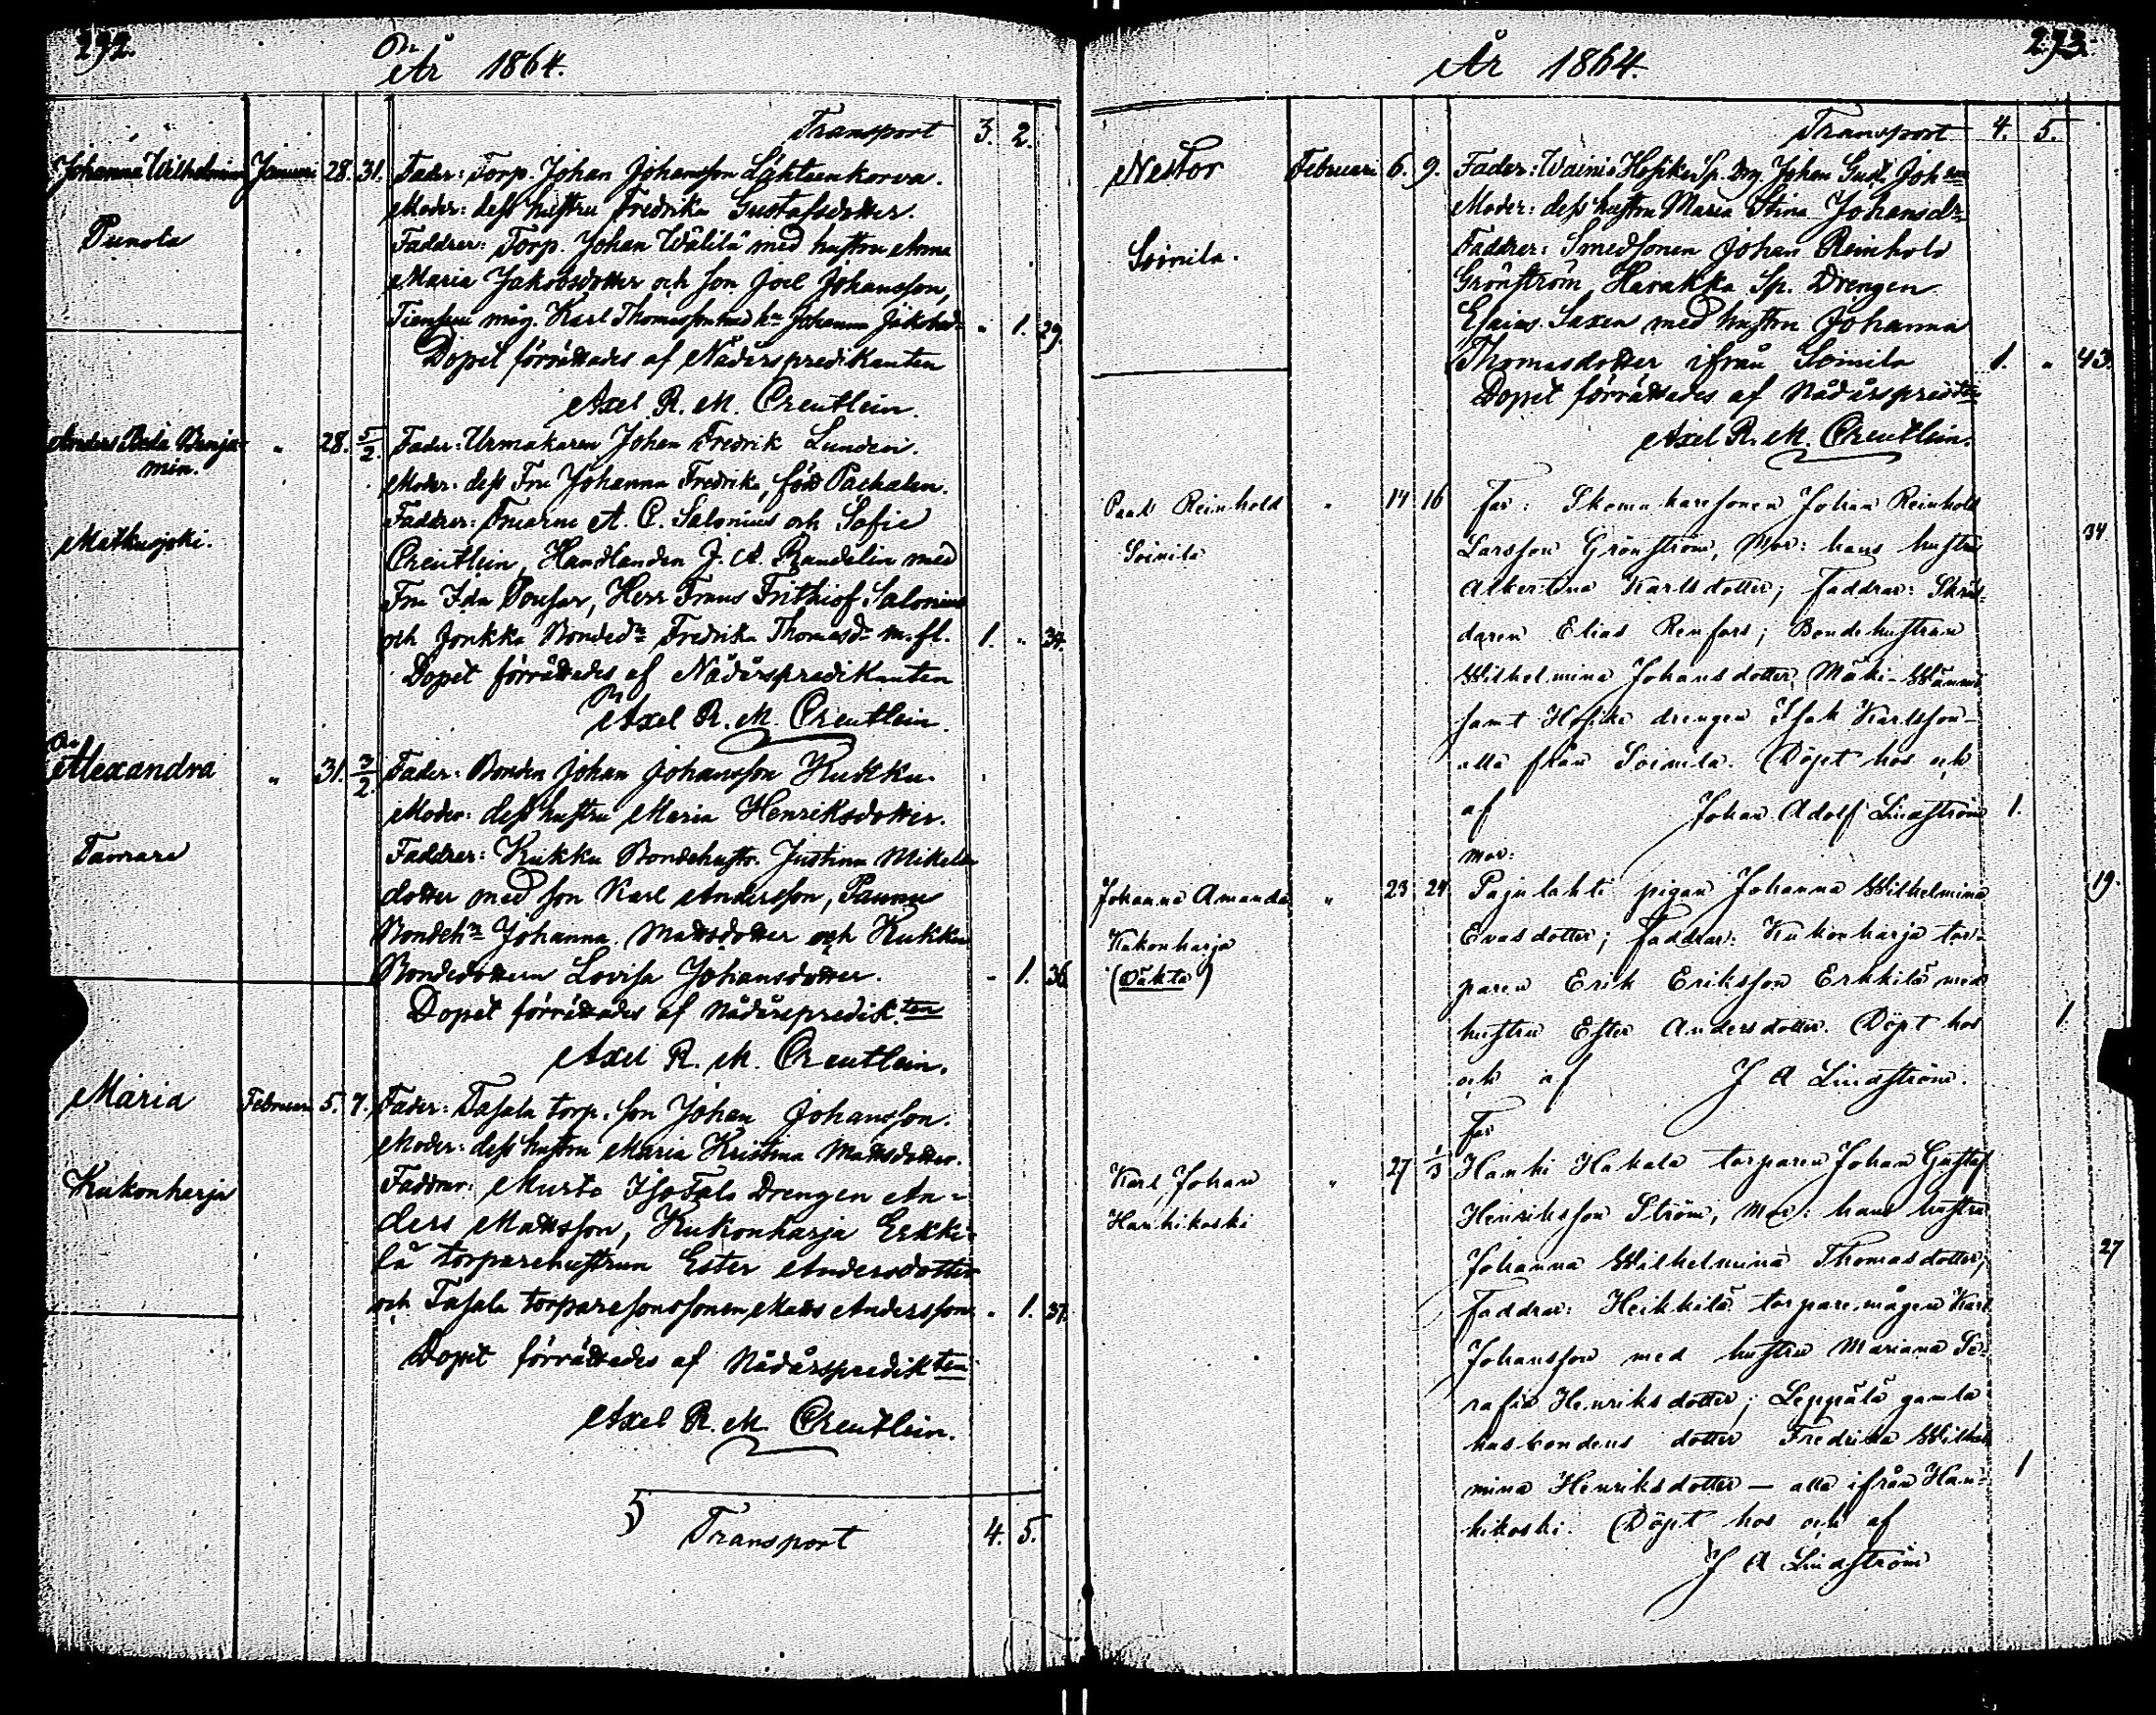 292.
År 1864.
Transport 3. 2.
Johanna Wilhelmina Januari 28. 31. Fader: Torp. Johan Johansson Lähteenkorva.
Moder: dess hustru Fredrika Gustafsdotter.
Punola
Faddrer: Torp. Johan Wälilä med hustru Anna
Maria Jakobsdotter och son Joel Johansson,
måg. Karl Thomasson med hu Johanna Jakobsd. " 1. 29.
Dopet förrättades af Nådårspredikanten
Axel R. M. Creutlein.
Anders Benja- " 28. 5/2. Fader: Urmakaren Johan Fredrik Lunden.
min.
Moder: dess Fru Johanna Fredrika, född Pachalen.
Matkusjoki.
Faddrer: Fruarne A. C. Salonius och Sofie
Creutlein, Handlanden J. A. Randelin med
Fru Ida Pousar, Herr Frans Frithiof Salonius
och Jonkka Bonded. Fredrika Thomasd. m. fl. 1. " 34.
Dopet förrättades af Nådårspredikanten
Axel R. M. Creutlein.
Alexandra " 31. 3/2. Fader: Bonden Johan Johansson Kukku.
Moder: dess hustru Maria Henriksdotter.
Tavvare
Faddrer: Kukku Bondehustr. Justina Mikels
dotter med son Karl Andersson, Paunu
Bondeh. Johanna Mattsdotter och Kukku
Bondedottern Lovisa Johansdotter. " 1. 36
Dopet förrättades af Nådårspredik.ten
Axel R. M. Creutlein.
Maria Februari 5. 7. Fader: Tasala torp. son Johan Johansson.
Moder: dess hustru Maria Kristina Mattsdotter.
Kukonharja
Faddrar: Murto IsoTalo Drengen An-
ders Mattsson, Kukonharja Erkki-
lä torparehustrun Ester Andersdotter
och Tasala torparesonssonen Matts Andersson. " 1. 37.
Dopet förrättades af Nådårspredikten
Axel R. M. Creutlein.
Transport 4. 5.
293.
År 1864.
Transport 4. 5.
Nestor Februari 6. 9. Fader: Wainio Hosike Sp. Drg. Johan Gust. Johsson
Moder: dess hustru Maria Stina Johansdr
Soinila.
Faddrer: Smedsonen Johan Reinhold
Grönström, Harakka Sp. Drengen
Esaias Saxen med hustru Johanna
Thomasdotter ifrån Soinila 1. " 43.
Dopet förrättades af Nådårspredten
Axel R. M. Creutlein.
Paul Reinhold " 14 16 Far: Skomakaresonen Johan Reinhold
Soinila
Larsson Grönström, Mor: hans hustru 34
Albertina Karlsdotter; Faddrar: Skräd-
daren Elias Renfors; Bondehustrun
Wilhelmina Johansdotter Mäki-
samt Hosike drengen Isak Karlsson -
alla från Soinila. Döpt hos och
af Johan Adolf Lindström 1.
mor:
Johanna Amanda " 23 24 Pajulahti pigan Johanna Wilhelmina 19.
Kukonharja
(Oäkta)
Evasdotter; Faddrar: Kukonharja tor-
paren Erik Eriksson Erkkilä med
hustru Ester Andersdotter. Döpt hos 1
och af J A Lindström.
Far
Karl Johan " 27 1/3 Hanhi Hakala torparen Johan Gustaf
Hanhikoski
Henriksson Ström, Mor: hans hustru
Johanna Wilhelmina Thomasdotter; 27
Faddrar: Heikkilä torpare mågen Karl
Johansson med hustru Mariana Se-
rafia Henriksdotter; Leppälä gamla
husbondens dotter Fredrika Wilhel
mina Henriksdotter — alla ifrån Han- 1
hikoski. Döpt hos och af
J A Lindström